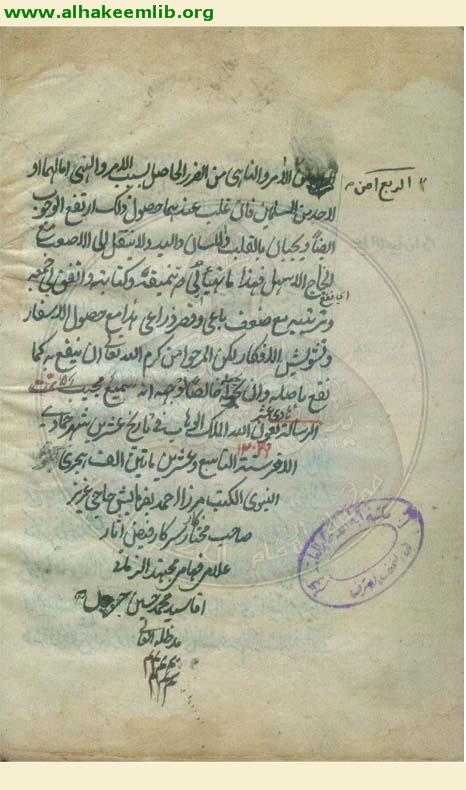 www.alhakeemlib.org
الأمر والناهى من الضرر الحاصل بسبب الامر والنهى امالهما او
الرابع امن
لاحد من المسلمين فان غلب عندهما حصول ذلك ارتفع الوجوب
ايضا ويجبان بالقلب واللسان واليد ولا ينتقل الى الاصعب مع
انجاح الاسهل فهذا ما تهيأ لى تنميقه وكتابته واتفق لى جمعه
وترتيبه مع ضعف باعى وقصر ذراعى هذا مع حصول الاسفار
وتشويش الافكار لكن المرجو من كرم الله تعالى ان ينفع به كما
نفع باصله وان يجعله خالصا لوجهه انه سميع مجيب تمت
الرسالة بعون الله الملك الوهاب فى تاريخ عشرين شهر جمادى
الاخر سنة التاسع وعشرين ماتين الف هجرى
النبوى الكتب ميرزا احمد بفرمايش حاجى عزيز
صاحب مختار سركار فيض اثار
علامى فهامى مجتهد الزمانى
اقا سيد محمد حسين
مد ظله العالى